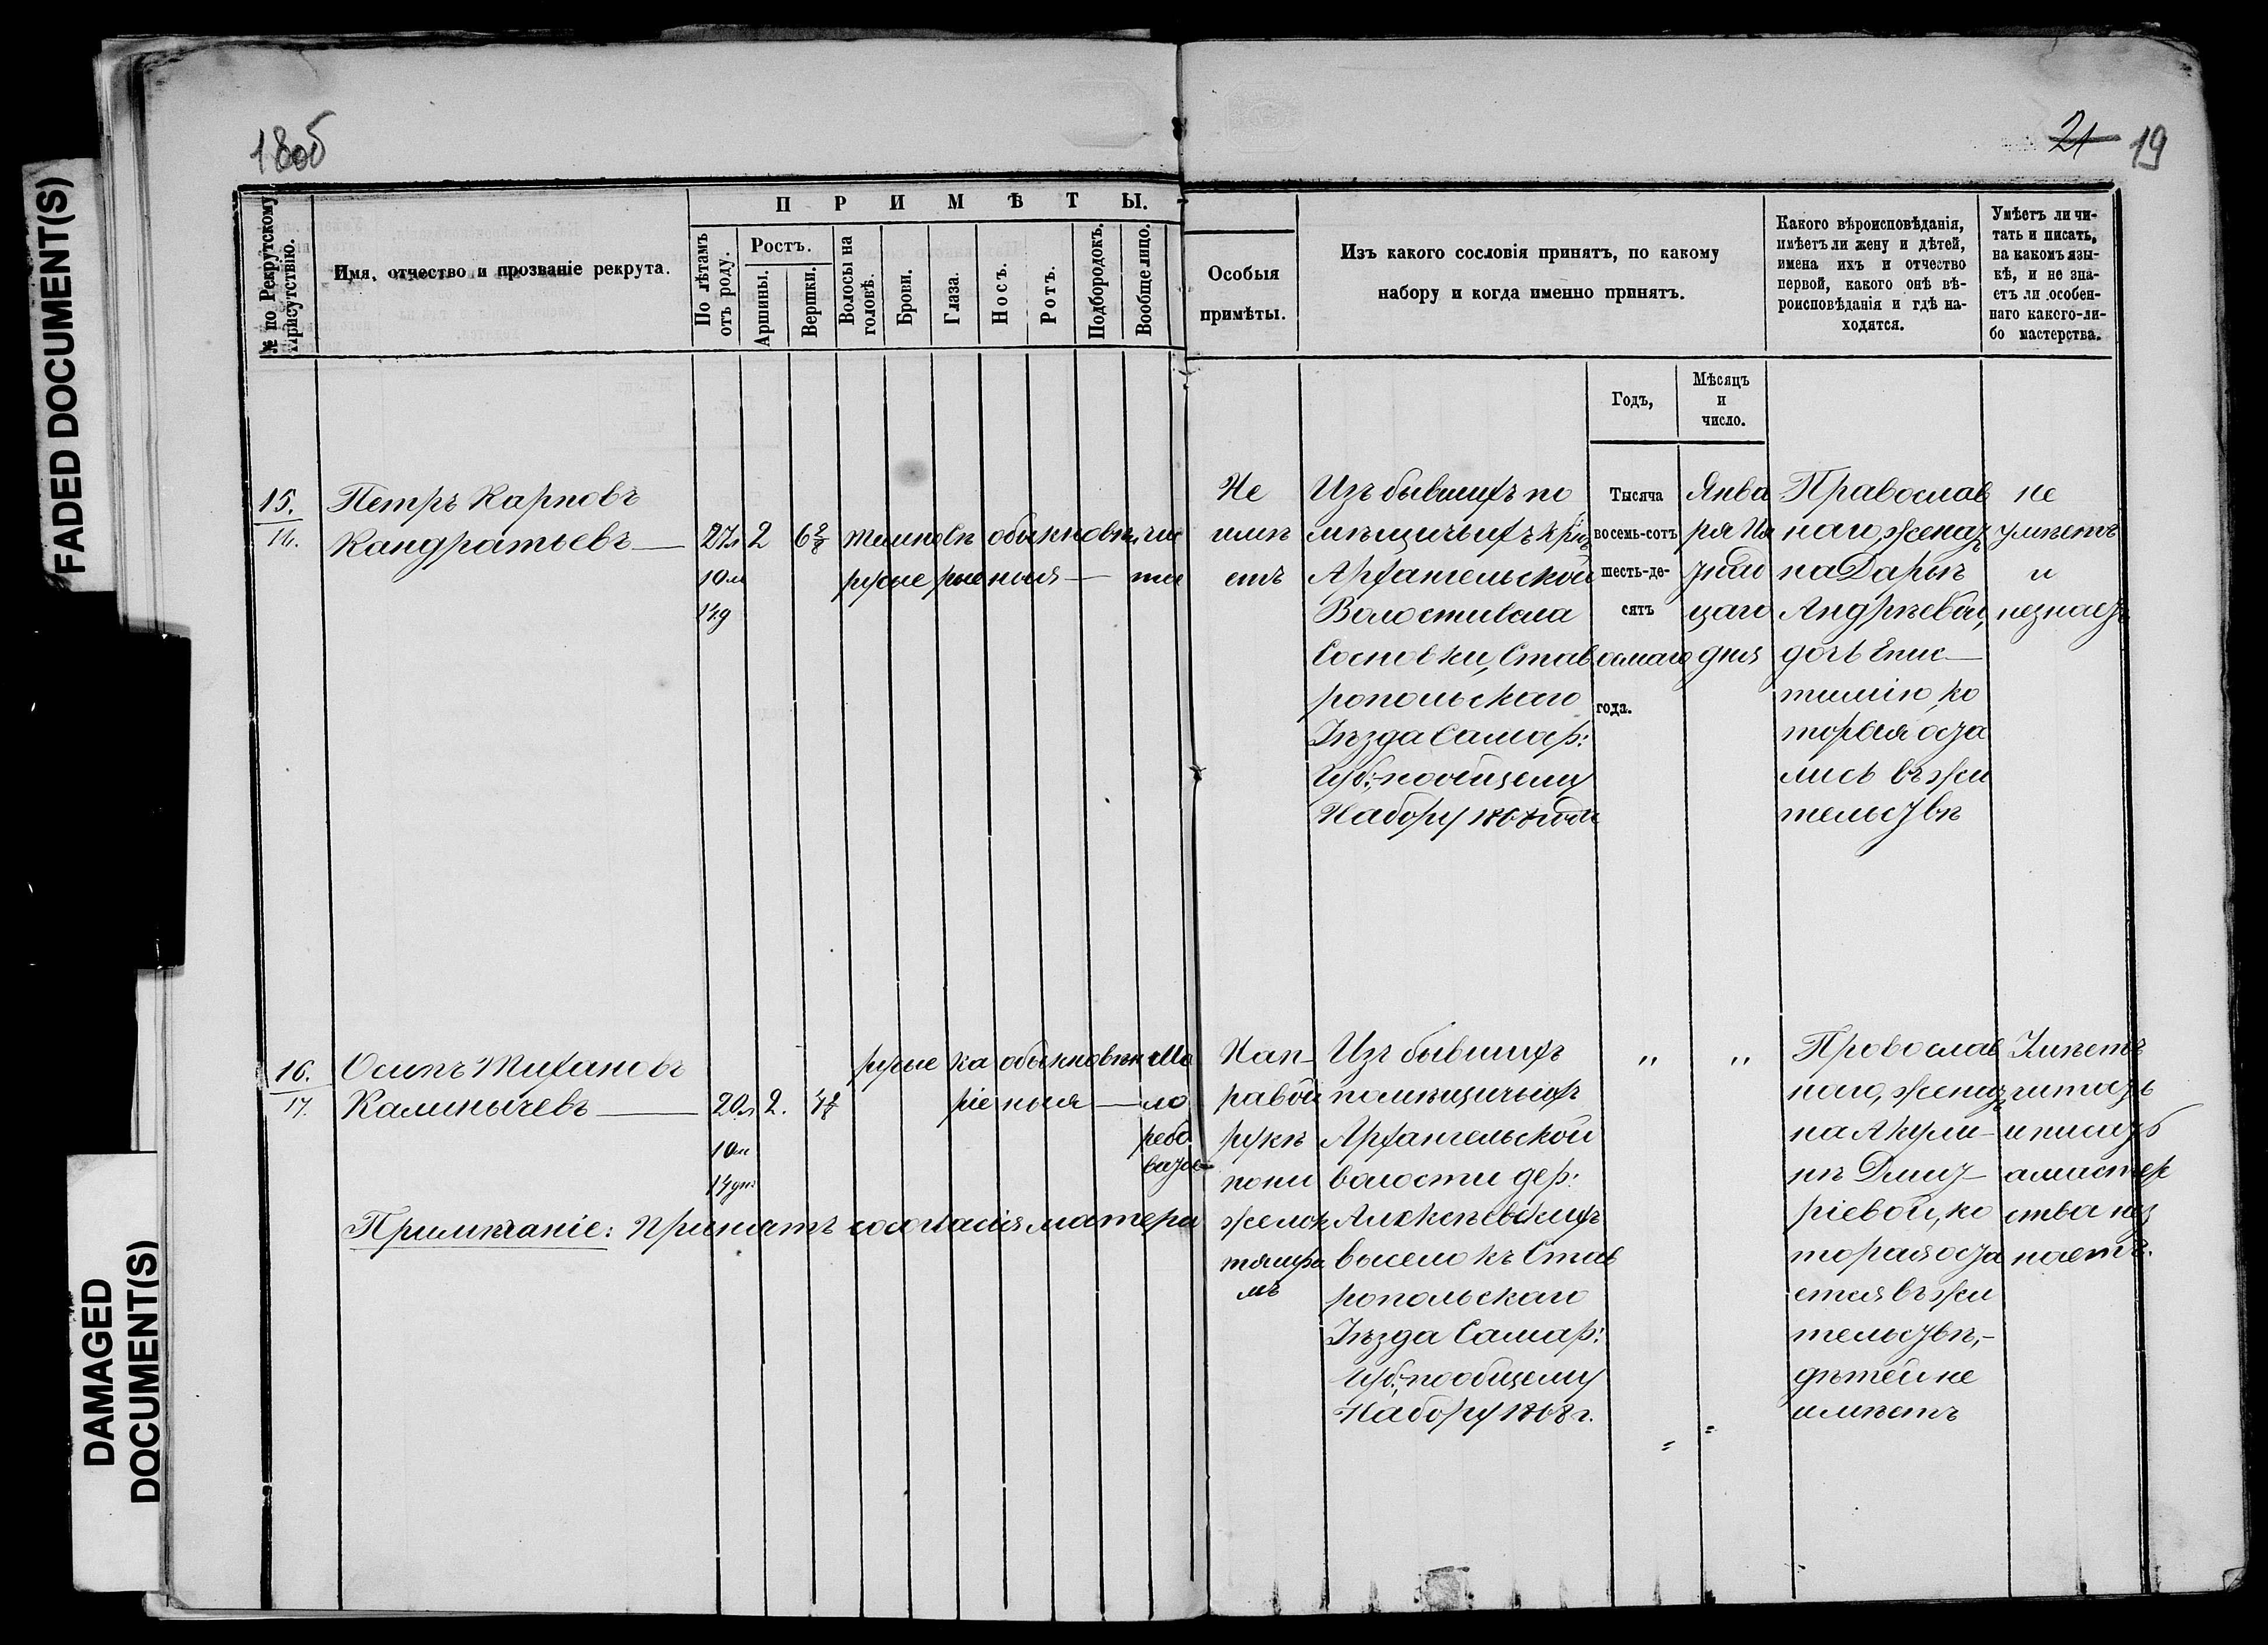 FADED DOCUMENT(S)
DAMAGED
DOCUMENT(S)
18об
21 19
№ по Рекрутскому Присутствію.
Имя, отчество и прозваніе рекрута.
ПРИМѢТЫ.
По лѣтамъ отъ роду.
Ростъ.
Аршины.
Вершки.
Волосы на головѣ.
Брови.
Глаза.
Носъ.
Ротъ.
Подбородокъ.
Вообще лицо.
Особыя
примѣты.
Изъ какого сословія принятъ, по какому
набору и когда именно принятъ.
Годъ,
Мѣсяцъ
и
число.
Какого вѣроисповѣданія,
имѣетъ ли жену и дѣтей,
имена ихъ и отчество
первой, какого онѣ вѣ-
роисповѣданія и гдѣ на-
ходятся.
Умѣетъ ли чи-
тать и писать,
на какомъ язы-
кѣ, и не зна-
етъ ли особен-
наго какого-ли-
бо мастерства.
15.
Петръ Карповъ
Кандратьевъ
27л
10м
14д
2
6 2/8
темно
русые
обыкновен
ныя
чис
тое
Не
имѣ
етъ
Изъ бывшихъ по
мѣщичьихъ кр:
Архангельской
Волости села
Сосновки, Став
ропольскаго
Уѣзда Самар:
Губ:, по общему
Набору 1868 года
Тысяча
восемь-сотъ
шесть-де-
сятъ
осмаго
года.
Янва
ря Пя
тнад
цаго
дня
Православ
наго, женат
на Дарьѣ
Андрѣевой,
дочь Епис
тимію, ко
торыя оста
лись въ жи
тельствѣ
не
умѣетъ
и
незнаетъ
16.
17.
Осипъ Тихановъ
Калинычевъ
20л
10м
14дн
2.
русые
ка
ріе
обыкновен
ныя
Мо
ло
На п
равой
рукѣ
Изъ бывшихъ
помѣщичьихъ
Архангельской
волости дер:
Алексѣевскихъ
выселокъ Став
ропольскаго
Уѣзда Самар:
Губ:, по общему
Набору 1868 г.
" "
Провослав
наго, женат
на Акули-
нѣ Дмит-
ріевой, ко
торая оста
ется въ жи
тельствѣ,-
дѣтей не
имѣетъ
Умѣетъ
читать
и писать
а мастер
ства нез
наетъ.
Примѣчаніе: Принятъ согласія матери